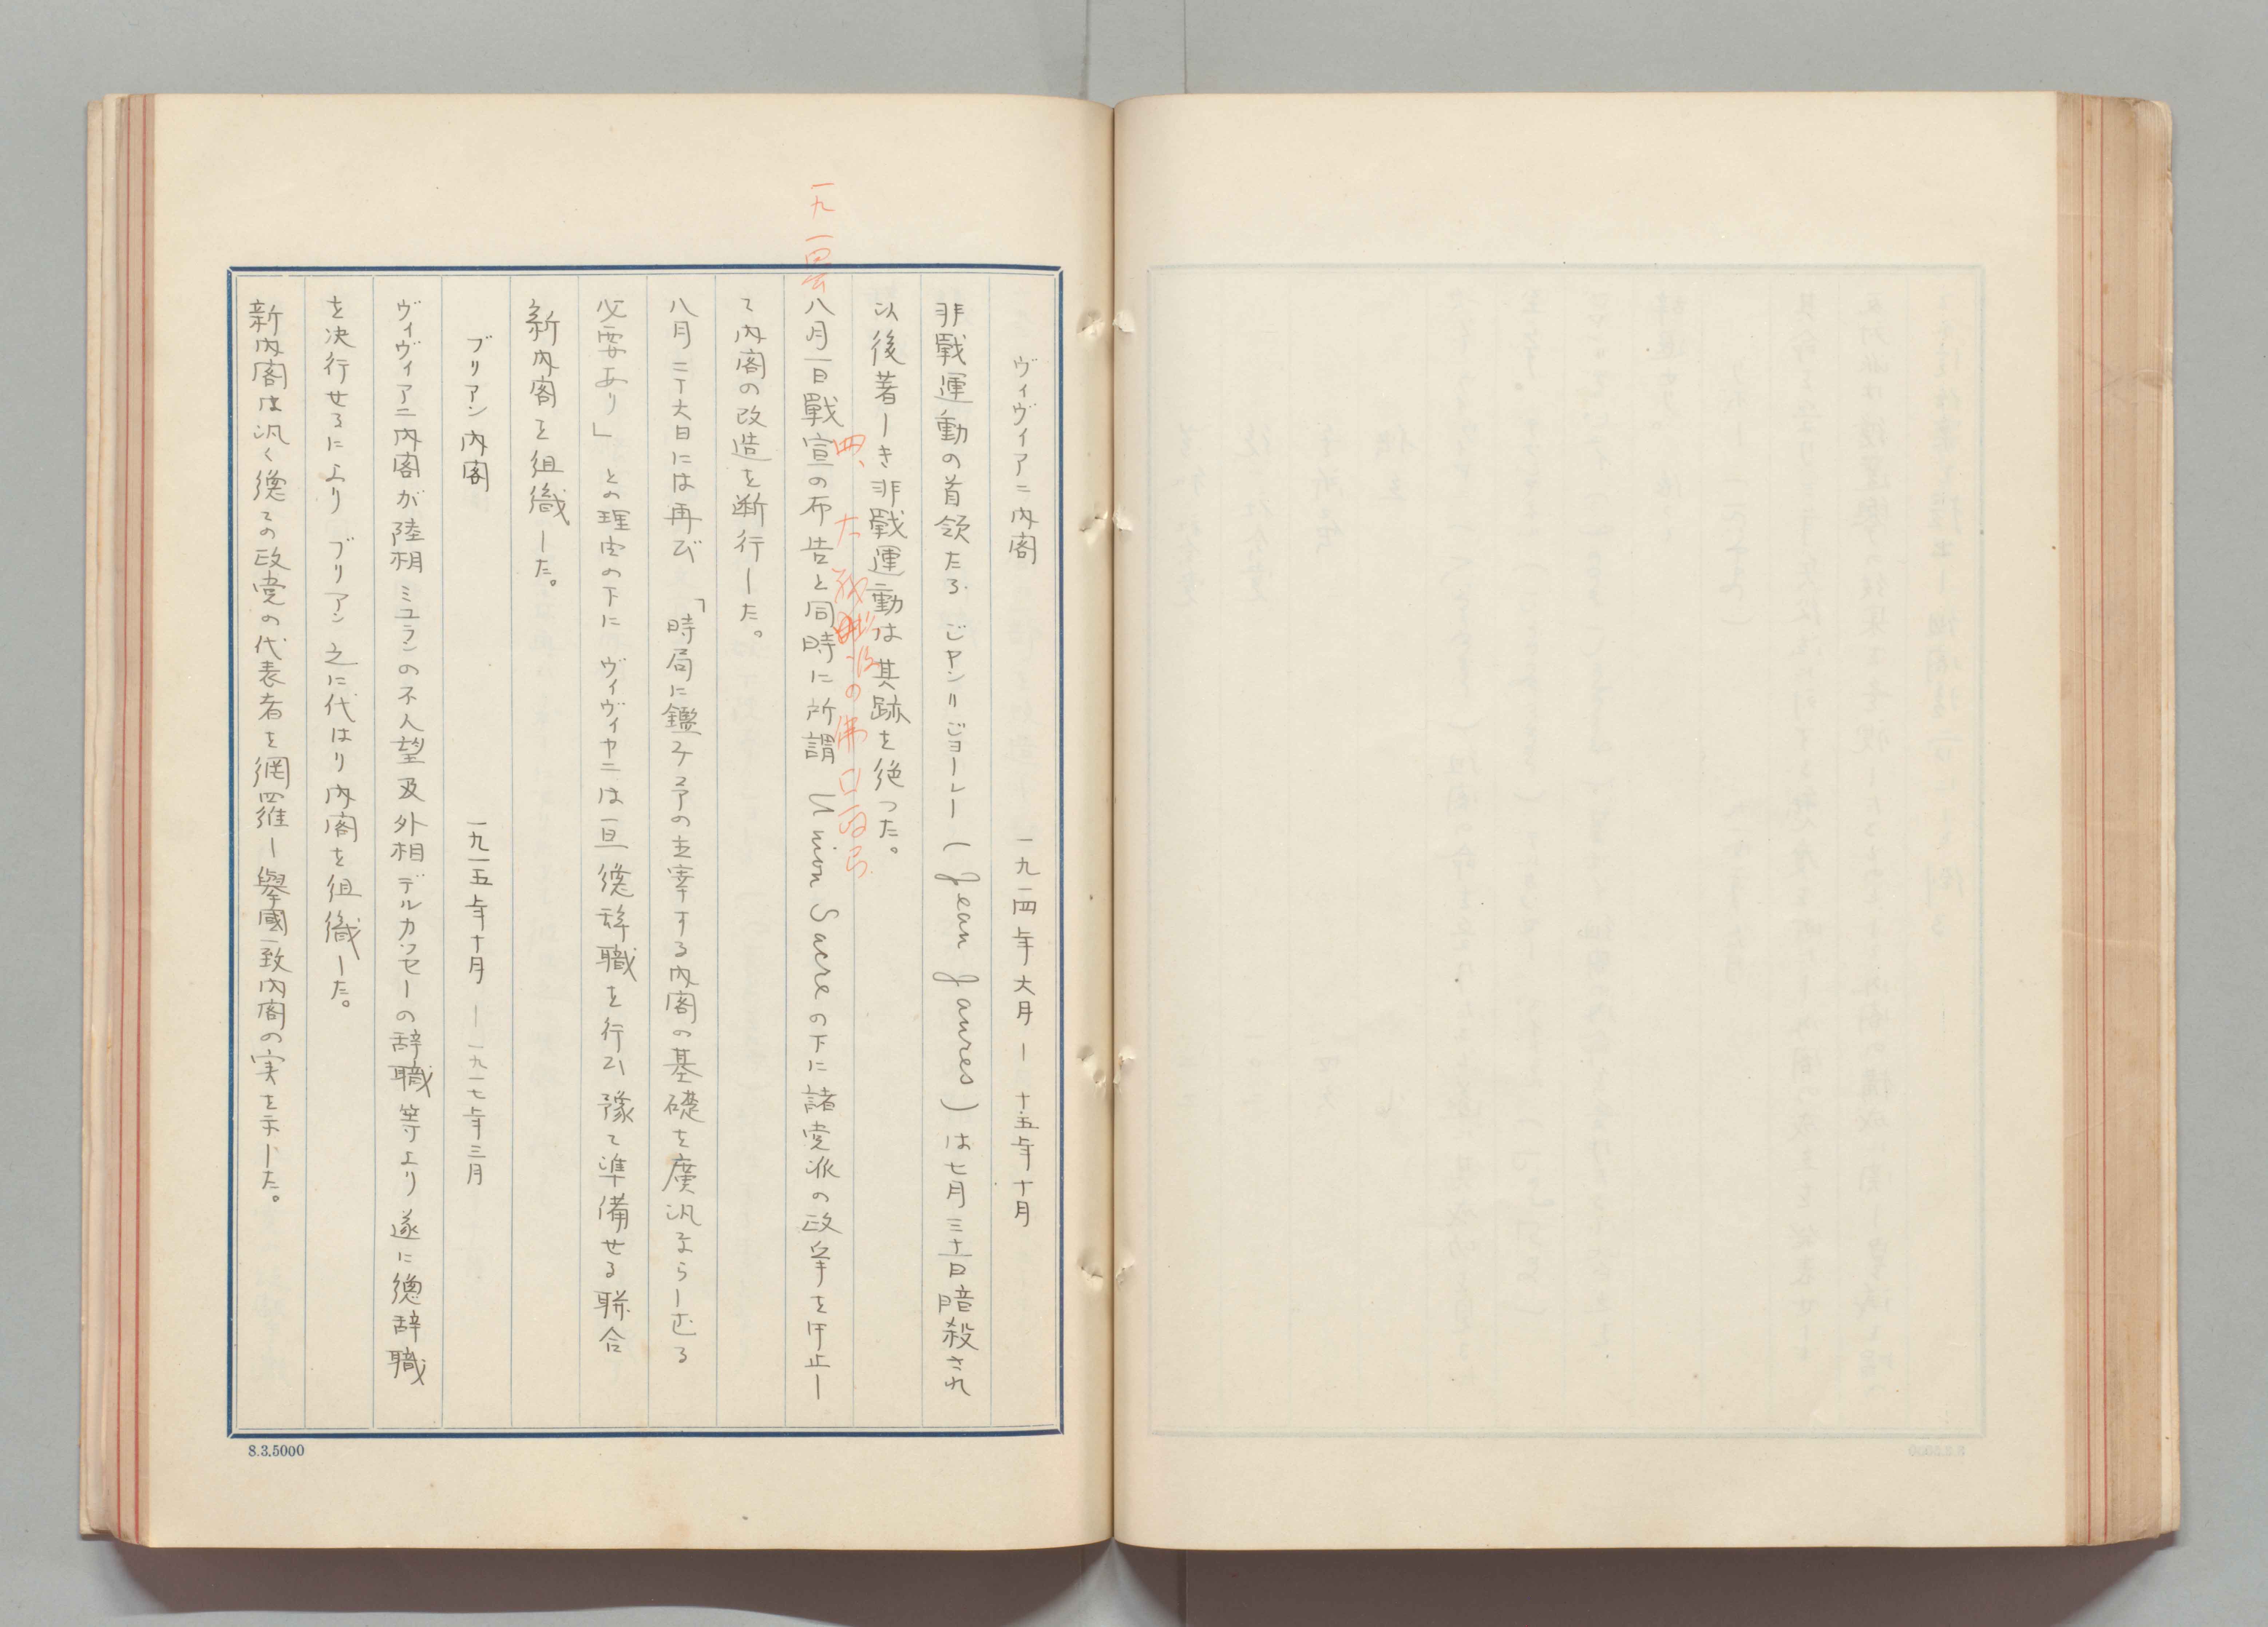 ヴィヴィアニ内閣　一九一四年六月ー十五年十月
非戰運動の首領たるジャン＝ジョーレー（Jean Jaures）は七月三十一日暗殺され
以後著しき非戰運動は其跡を絶つた。
八月一日戰宣の布告と同時に所謂 Union Sacre の下に諸党派の政争を停止し
て内閣の改造を断行した。
八月二十六日には再び「時局に鑑み予の主宰する内閣の基礎を廣汎ならしむる
必要あり」との理由の下にヴィヴィヤニは一旦總辞職を行ひ豫て準備せる聯合
新内閣を組織した。
ブリアン内閣　一九一五年十月ー一九一七年三月
ヴィヴィアニ内閣が陸相ミユランの不人望及外相デルカッセーの辞職等より遂に總辞職
を决行せるによりブリアン之に代はり内閣を組織した。
新内閣は汎く總ての政党の代表者を網羅し擧國一致内閣の実を示した。
一九一
の佛
8.3.5000